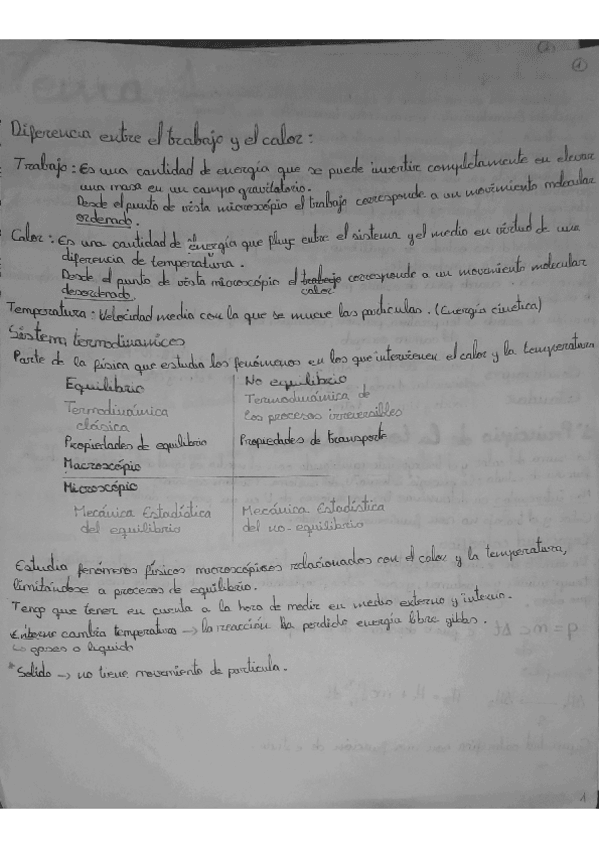 ①
Diferencia entre el trabajo y el calor:
Trabajo: Es una cantidad de energía que se puede invertir completamente en elevar
una masa en un campo gravitatorio.
Desde el punto de vista microscópio el trabajo corresponde a un movimiento molecular
ordenado.
Calor: Es una cantidad de energía que fluye entre el sistema y el medio en virtud de una
diferencia de temperatura.
Desde el punto de vista microscópio el trabajo corresponde a un movimiento molecular
calor
desordenado.
Temperatura: Velocidad media con la que se mueve las particulas. (Energía cinetica)
Sistema termodinamicos
Parte de la física que estudia los fenómenos en los que intervienen el calor y la temperatura
Equilibrio No equilibrio
Termodinámica Termodinámica de
clásica los procesos irreversibles
Propiedades de equilibrio Propiedades de transporte
Macroscópio
Microscópio
Mecánica Estadística Mecánica Estadística
del equilibrio del no-equilibrio
Estudia fenómenos físicos macroscópicos relacionados con el calor y la temperatura,
limitándose a procesos de equilibrio.
que tener en cuenta a la hora de medir en medio externo y interno.
cambia temperatura → la reacción ha perdido energía libre
o
*Solido → no tiene movimiento de particula.
1